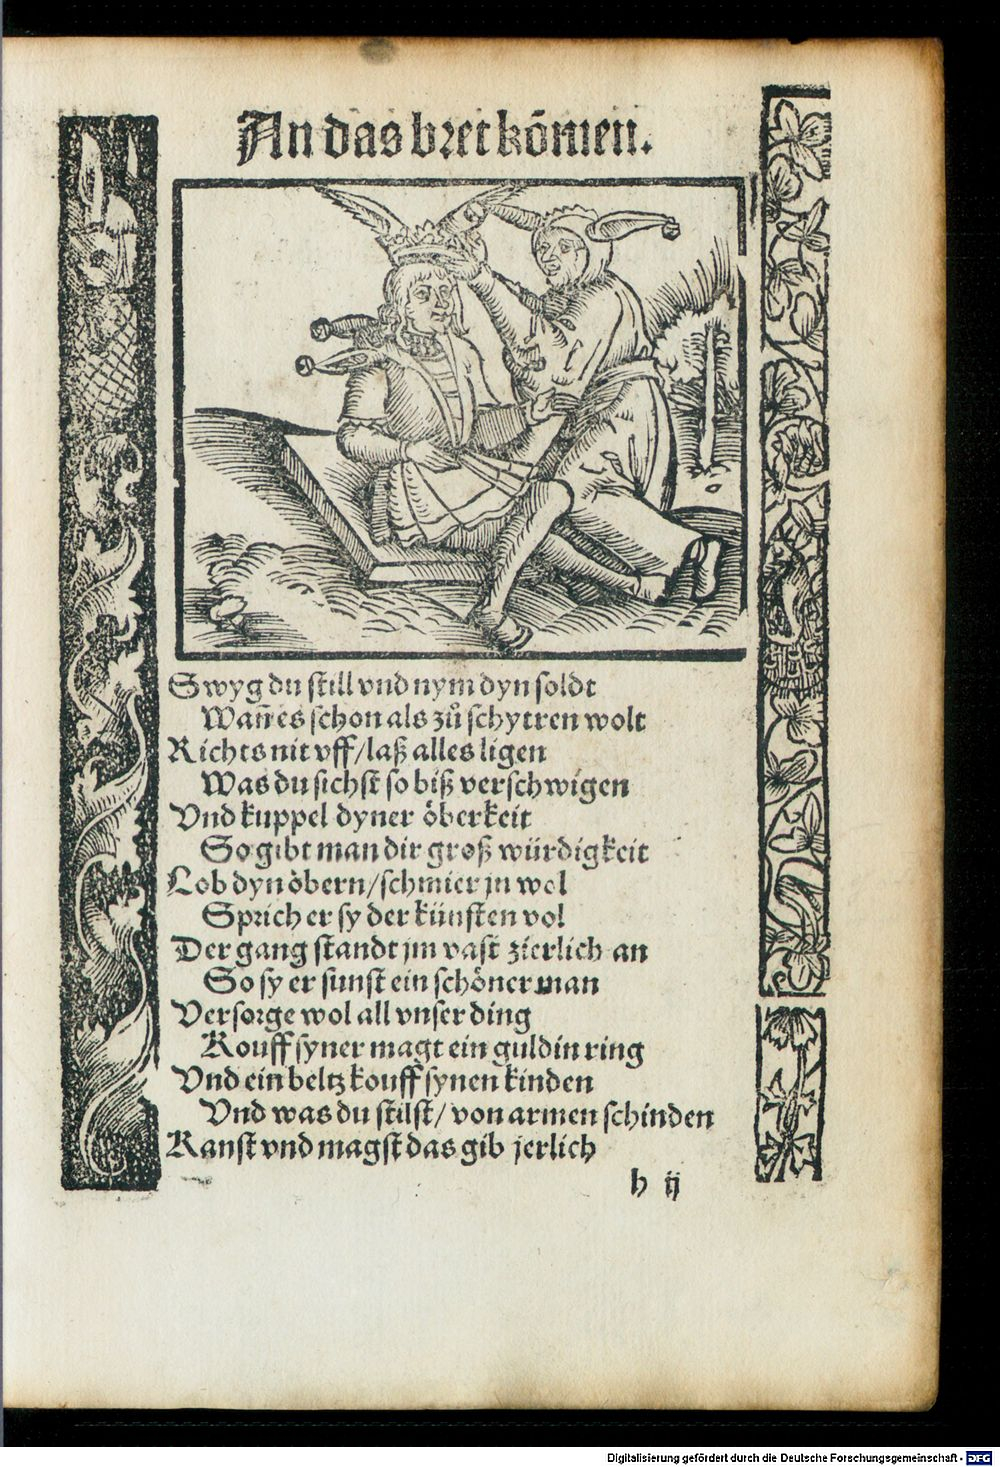 An das bret kōmen.
Swyg du still vnd nym dyn soldt
Wañ es schon als zů schytren wolt
Richts nit vff/laß alles ligen
Was du sichst so biß verschwigen
Vnd kuppel dyner öberkeit
So gibt man dir groß würdigkeit
Lob dyn öbern/schmier jn wol
Sprich er sy der künsten vol
Der gang standt jm vast zierlich an
So sy er sunst ein schöner man
Versorge wol all vnser ding
Kouff syner magt ein guldin ring
Vnd ein beltz kouff synen kinden
Vnd was du stilst/von armen schinden
Kanst vnd magst das gib jerlich
h ij
Digitalisierung gefördert durch die Deutsche Forschungsgemeinschaft - DFG